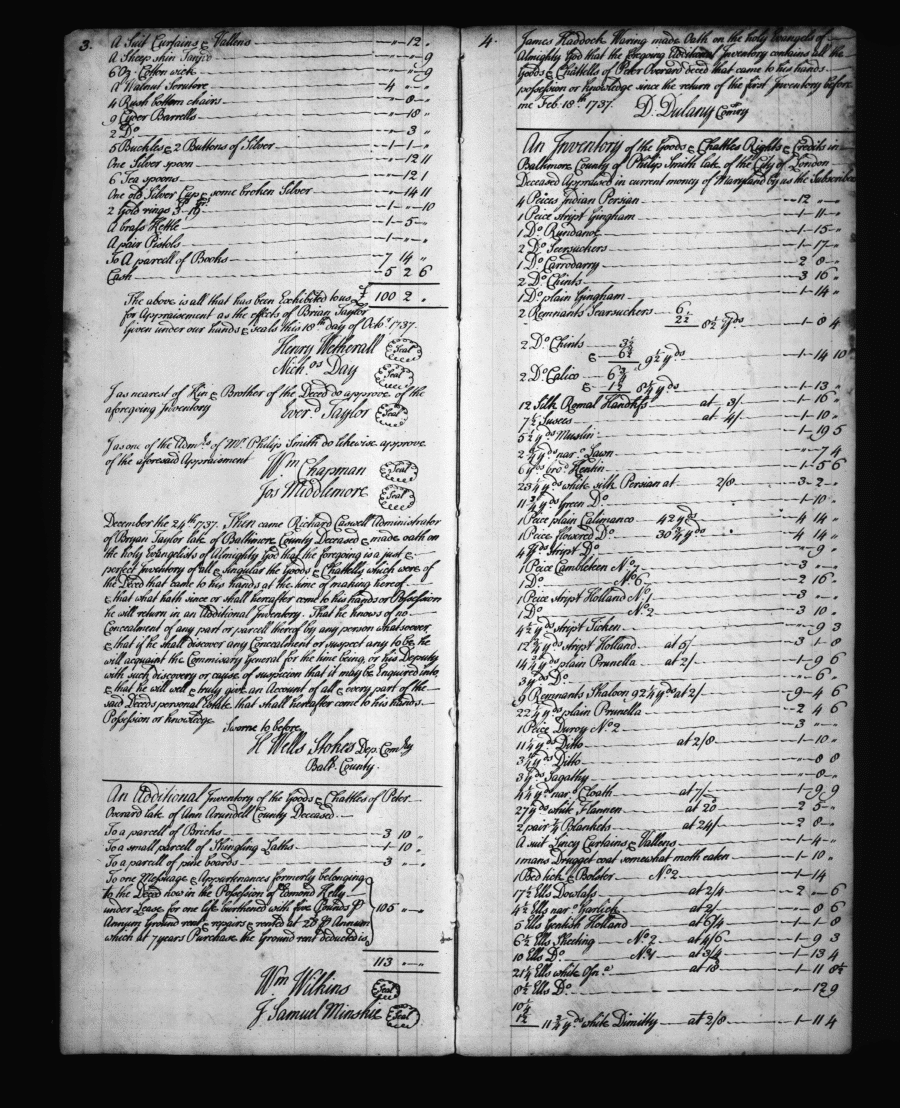 3.
A Suit Curtains & Vallens - " 12 "
A Sheep skin - " " 9
6 Oz. Cotton wick - " " 9
A Walnut Scrutore - 4 " "
4 Rush bottom chairs - " 8 "
9 Cyder Barrells - " 18 "
2 Do - " 3 "
5 Buckles & 2 Buttons of Silver - 1 1 "
One Silver spoon - " 12 11
6 Tea spoons - " 12 1
One old Silver Cup & some broken Silver - " 14 11
2 Gold rings - 1 " 10
A brass Kettle - 1 5 "
A pair Pistols - 1 " "
To A parcell of Books - 7 14 "
Cash - 5 2 6
The above is all that has been Exhibited to us £ 100 2 "
for Appraisement as the effects of Brian Taylor
Given under our hands & seals this 10th day of Octr. 1737.
Henry Wetherall Seal
Nich.os Day Seal
I as nearest of Kin & Brother of the Deced do approve of the
aforegoing Inventory Everd Taylor Seal
I as one of the Admrs of Mr. Philip Smith do likewise approve
of the aforesaid Appraisment Wm Chapman Seal
Jos Middlemore Seal
December the 24th 1737. Then came Richard Caswell Administrator
of Bryan Taylor late of Baltimore County Deceased & made oath on
the holy Evangelists of Almighty God that the foregoing is a just &
perfect Inventory of all & singular the Goods & Chattells which were of
the Deced that came to his hands at the time of making hereof
& that what hath since or shall hereafter come to his hands or Possession
he will return in an Additional Inventory. That he knows of no
Concealment of any part or parcell thereof by any person whatsoever
& that if he shall discover any Concealment or suspect any to be he
will acquaint the Commissary General for the time being, or his Deputy
with such discovery or cause of suspicion that it may be Enquired into
& that he will well & truly give an Account of all & every part of the
said Deceds personal Estate that shall hereafter come to his hands
Possession or knowledge
Sworne to before
H Wells Stokes Dep. Comry
Balt. County.
An Additional Inventory of the Goods & Chattles of Peter
Overard late of Ann Arundell County Deceased
To a parcell of Bricks - 3 10 "
To a small parcell of Shingling Laths - 1 10 "
To a parcell of pine boards - 3 " "
To one Message & Appertenances formerly belonging
to the Deced now in the Possession of Edmond Kelly
under Lease for one life burthened with five Pounds P
Annum Ground rent & repairs & rented at P Annum 105 " "
which at 7 years Purchase the Ground rent deducted is
113 " "
Wm Wilkins Seal
J Samuel Minskie Seal
4.
James Haddock Waring made Oath on the holy Evangels of
Almighty God that the foregoing Additional Inventory contains all the
Goods & Chattells of Peter Overard deced that came to his hands
possession or knowledge since the return of the first Inventory before
me Feb. 18th 1737. D. Dulany Comry
An Inventory of the Goods & Chattles Rights & Credits in
Baltimore County of Philip Smith late of the City of London
Deceased Appraised in current money of Maryland by us the Subscribers
4 Peices Indian Persian - 12 " "
1 Peice stript Gingham - 1 11 "
1 Do - 1 15 "
2 Do Seersuckers - 1 17 "
1 Do Carrodarry - 2 8 "
2 Do Chints - 3 16 "
1 Do plain Gingham - 1 14 "
2 Remnants Searsuckers 6
2½ 8½ yds - 1 8 4
2 Do Chints 3½
& 6¼ 9½ yds - 1 14 10
2 Do Calico 6¾
& 1½ 8¼ yds - 1 13 "
12 Silk Romal Handkfs at 3/ - 1 16 "
7½ at 4/ - 1 10 "
5½ yds Muslin - 1 19 5
2¾ yds nar. Lawn - " 7 4
6 yds bro. - 1 5 6
23¼ yds white silk Persian at 2/8 - 3 2 "
11¼ yds Green Do - 1 10 "
1 Peice plain Calimanco 42 yds - 4 14 "
1 Peice flowered Do 30¾ yds - 4 14 "
4 yds stript Do - " 9 "
1 Peice Cambleteen No. 7 - 3 " "
1 Do No. 6 - 2 16 "
1 Peice stript Holland No. 1 - 3 " "
1 Do No. 2 - 3 10 "
4½ yds stript Ticken - " 9 3
12¼ yds stript Holland at 5/ - 3 1 8
14¾ yds plain Prunella at 2/ - 1 9 6
3 yds Do - " 6 "
9 Remnants Shaloon 92¼ yds at 2/ - 9 4 6
22¼ yds plain Prunella - 2 4 6
1 Peice Duroy No. 2 - 3 " "
11¼ yds Ditto at 2/8 - 1 10 "
3¼ yds Ditto - " 8 8
3 yds Sagathy - " 8 "
4¼ yds nar. Cloath at 7/ - 1 9 9
27 yds white Flannen at 20 - 2 5 "
2 pair ¾ Blankets at 24/ - 2 8 "
A suit Lincy Curtains & Vallens - 1 4 "
1 mans Drugget coat somewhat moth eaten - 1 10 "
1 Bed tick & Bolster No. 2 - 1 14
17½ Ells Dowlass at 2/4 - 2 " 6
4¼ Ells nar. Garlick at 2/ - " 8 6
5 Ells Gentish Holland at 5/4 - 1 1 8
6½ Ells Sheeting No. 2 at 4/6 - 1 9 3
10 Ells Do No. 1 at 3/4 - 1 13 4
21¼ Ells white at 18 - 1 11 8½
8½ Ells Do - " 12 9
10¼
1½ 11¾ yds white Dimitty at 2/8 - 1 11 4